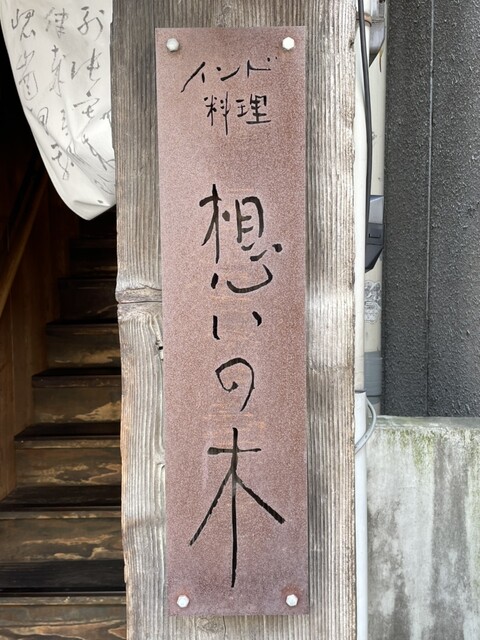 インド
料理
想いの木